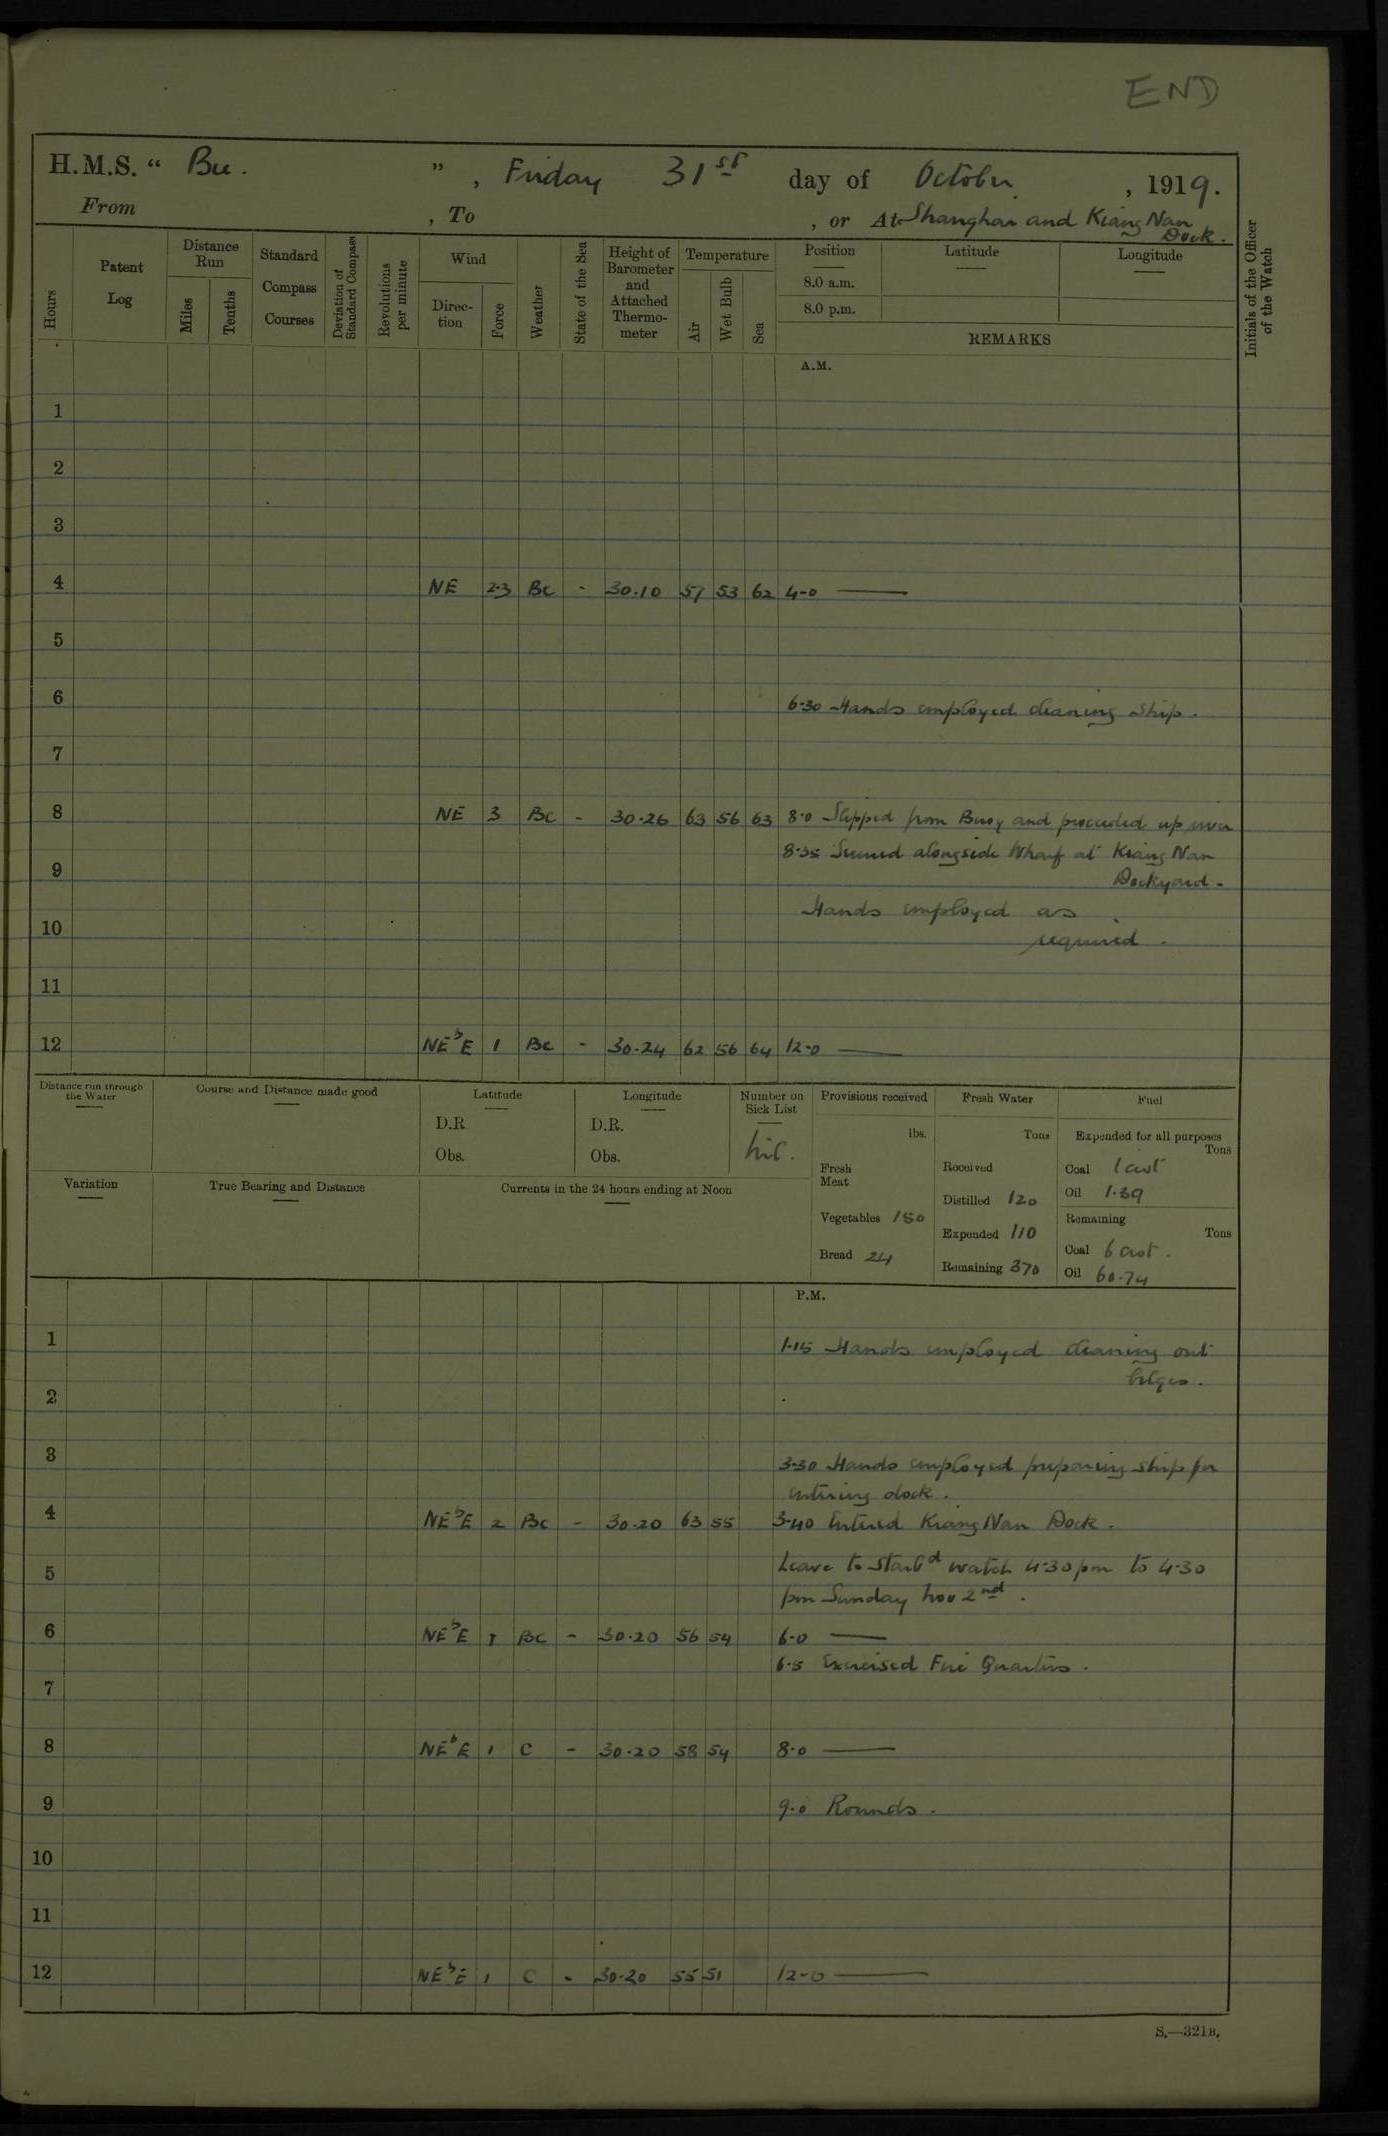 END
H.M.S. “ Bee. ” , Friday 31st day of October , 1919.
From , To , or At Shanghai and Kiang Nan
Dock.
Hours
Patent
Log
Distance
Run
Miles
Tenths
Standard
Compass
Courses
Deviation of
Standard Compass
Revolutions
per minute
Wind
Direc-
tion
Force
Weather
State of the Sea
Height of
Barometer
and
Attached
Thermo-
meter
Temperature
Air
Wet Bulb
Sea
Position
8.0 a.m.
8.0 p.m.
Latitude
Longitude
REMARKS
Initials of the Officer
of the Watch
A.M.
1
2
3
4 NE 2·3 Bc - 30·10 57 53 62 4-0 ——
5
6
6·30 Hands employed cleaning ship.
7
8 NE 3 Bc - 30·26 63 56 63 8·0 Slipped from Buoy and proceeded up river
8·35 Secured alongside Wharf at Kiang Nan
9
Dockyard.
Hands employed as
10 required.
11
12 NEbE 1 Bc - 30·24 62 56 64 12·0 ——
Distance run through
the Water
Course and Distance made good
Latitude
D.R
Obs.
Longitude
D.R.
Obs.
Number on
Sick List
Nil.
Provisions received
lbs.
Fresh
Meat
Vegetables 150
Bread 24
Fresh Water
Tons
Received
Distilled 120
Expended 110
Remaining 370
Fuel
Expended for all purposes
Tons
Coal 1 cwt
Oil 1·39
Remaining
Tons
Coal 6 cwt.
Oil 60·74
Variation
True Bearing and Distance
Currents in the 24 hours ending at Noon
P.M.
1 1·15 Hands employed cleaning out
bilges.
2
3
3·30 Hands employed preparing ship for
entering dock.
4 NEbE 2 Bc - 30·20 63 55 3·40 Entered Kiang Nan Dock.
5 Leave to Starbd watch 4·30 pm to 4·30
pm Sunday Nov 2nd.
6 NEbE 1 Bc - 30·20 56 54 6·0 ——
6·5 Exercised Fire Quarters.
7
8 NEbE 1 C - 30·20 58 54 8·0 ——
9 9·0 Rounds.
10
11
12 NEbE 1 C - 30·20 55 51 12-0 ——
S.—321B.